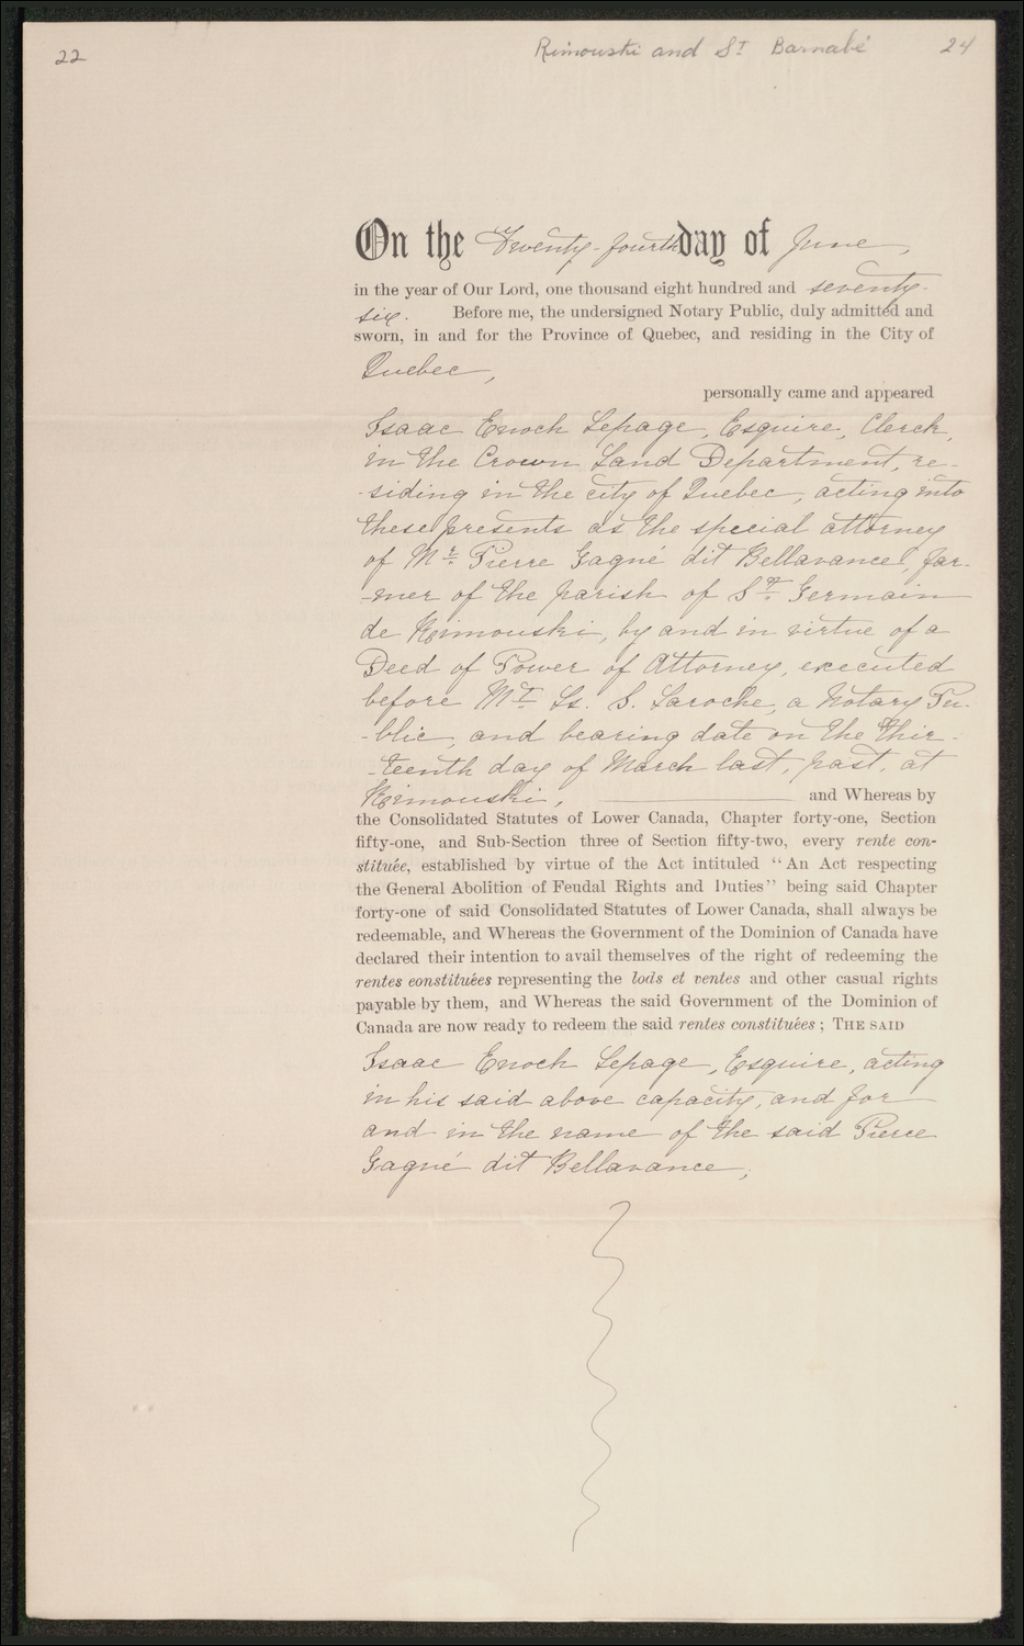 22
Rimouski and St Barnabé
24
On the Twenty-fourth day of June,
in the year of Our Lord, one thousand eight hundred and seventy-
six. Before me, the undersigned Notary Public, duly admitted and
sworn, in and for the Province of Quebec, and residing in the City of
Quebec,
personally came and appeared
Isaac Enoch Lepage, Esquire, Clerck,
in the Crown Land Department, re-
-siding in the city of Quebec, acting into
these presents as the special attorney
of Mr. Pierre Gagné dit Bellavance, far-
-mer of the parish of St. Germain
de Rimouski, by and in virtue of a
Deed of Power of Attorney, executed
before Mt Ls. S. Laroche, a Notary Pu-
-blic, and bearing date on the thir-
-teenth day of March last, past, at
Rimouski, and Whereas by
the Consolidated Statutes of Lower Canada, Chapter forty-one, Section
fifty-one, and Sub-Section three of Section fifty-two, every rente con-
stituée, established by virtue of the Act intituled “An Act respecting
the General Abolition of Feudal Rights and Duties” being said Chapter
forty-one of said Consolidated Statutes of Lower Canada, shall always be
redeemable, and Whereas the Government of the Dominion of Canada have
declared their intention to avail themselves of the right of redeeming the
rentes constituées representing the lods et ventes and other casual rights
payable by them, and Whereas the said Government of the Dominion of
Canada are now ready to redeem the said rentes constituées; THE SAID
Isaac Enoch Lepage, Esquire, acting
in his said above capacity, and for
and in the name of the said Pierre
Gagné dit Bellavance,